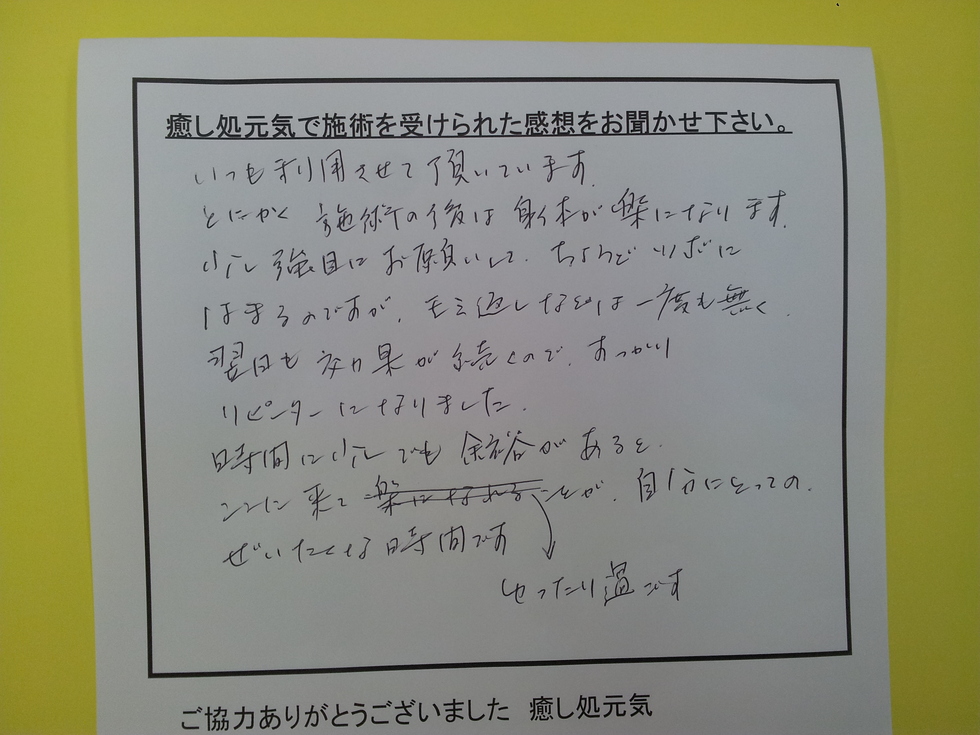 癒し処元気で施術を受けられた感想をお聞かせ下さい。
いつも利用させて頂いています。
とにかく 施術の後は 身体が 楽になります。
少し 強目に お願いして、ちょうど ツボに
はまるのですが、モミ返しなどは 一度も 無く、
翌日も 効果が 続くので、すっかり
リピーターになりました。
時間に少しでも 余裕が あると、
ここに 来て 楽になれることが、自分にとっての、
ぜいたくな 時間です
ゆったり過ごす
ご協力ありがとうございました 癒し処元気